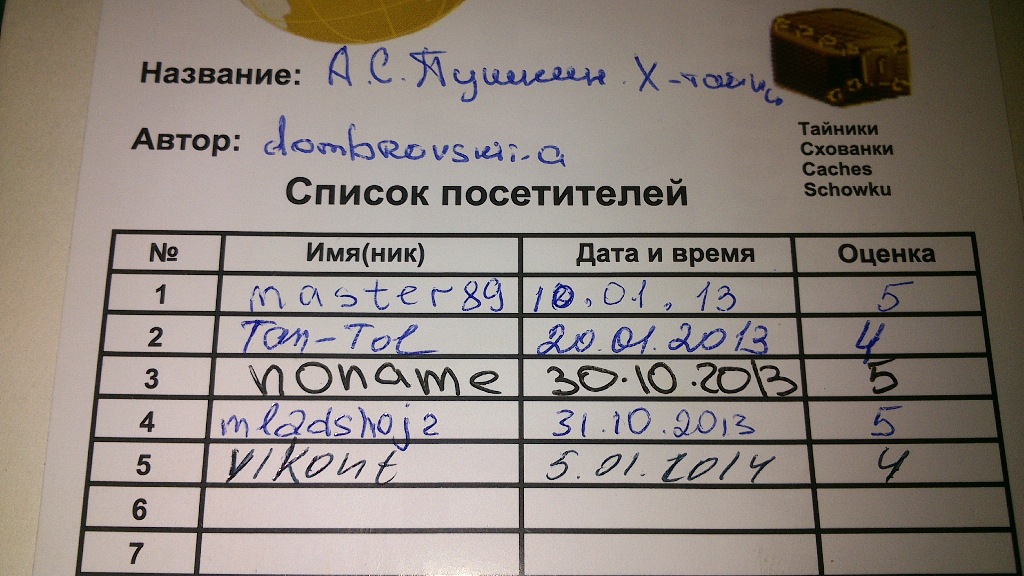 Название: А.С. Пушкин. Х-тайны
Автор: dombrovskii-a
Тайники
Схованки
Caches
Schowku
Список посетителей
№ Имя(ник) Дата и время Оценка
1 master89 10.01.13 5
2 Tan-Tol 20.01.2013 4
3 noname 30.10.2013 5
4 mladshoj2 31.10.2013 5
5 vikont 5.01.2014 4
6
7